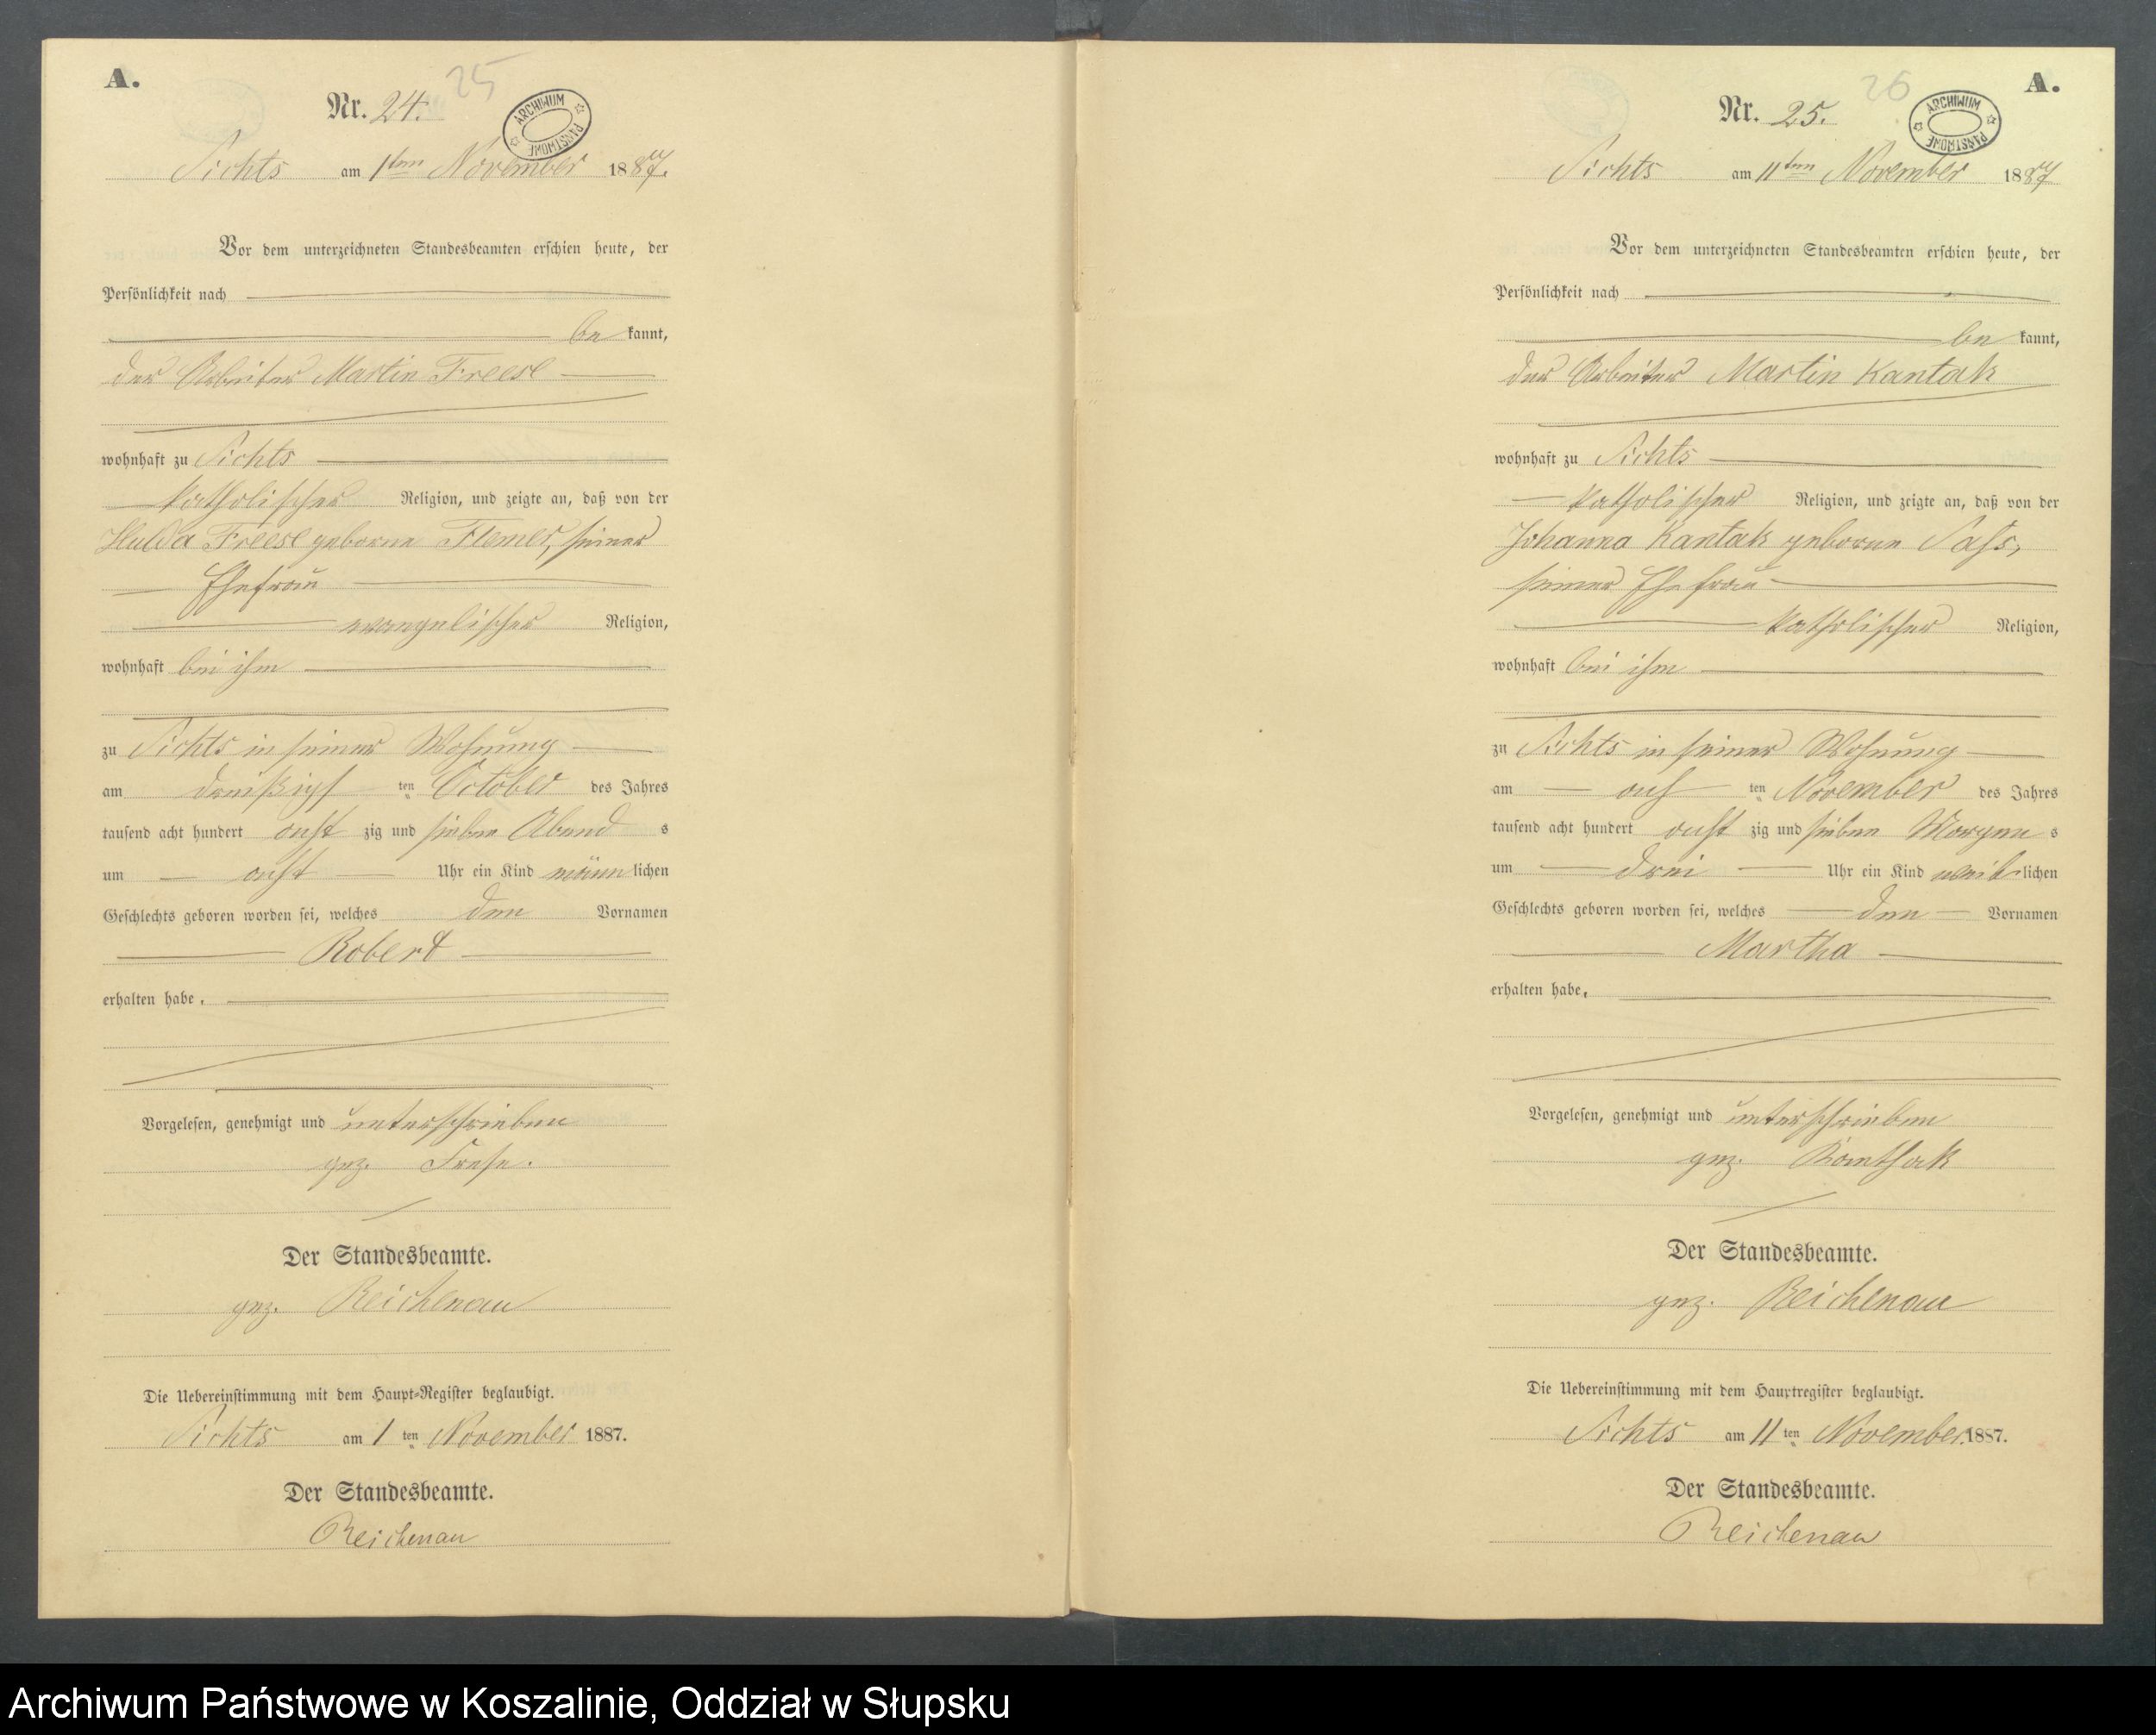 A.
25
Nr. 24.
ARCHIWUM PAŃSTWOWE
Sichts am 1ten November 1887.
Vor dem unterzeichneten Standesbeamten erschien heute, der
Persönlichkeit nach
be kannt,
der Arbeiter Martin Freese
wohnhaft zu Sichts
katholischer Religion, und zeigte an, daß von der
Hulda Freese geborne Flemer, seiner
Ehefrau
evangelischer Religion,
wohnhaft bei ihm
zu Sichts in seiner Wohnung
am dreißigst ten October des Jahres
tausend acht hundert acht zig und sieben Abend s
um acht Uhr ein Kind männ lichen
Geschlechts geboren worden sei, welches den Vornamen
Robert
erhalten habe.
Vorgelesen, genehmigt und unterschrieben
gez. Frese.
Der Standesbeamte.
gez. Reichenau
Die Uebereinstimmung mit dem Haupt-Register beglaubigt.
Sichts am 1 ten November 1887.
Der Standesbeamte.
Reichenau
A.
26
Nr. 25.
ARCHIWUM PAŃSTWOWE
Sichts am 11ten November 1887
Vor dem unterzeichneten Standesbeamten erschien heute, der
Persönlichkeit nach
be kannt,
der Arbeiter Martin Kantak
wohnhaft zu Sichts
katholischer Religion, und zeigte an, daß von der
Johanna Kantak geborne Sass,
seiner Ehefrau
katholischer Religion,
wohnhaft bei ihm
zu Sichts in seiner Wohnung
am ach ten November des Jahres
tausend acht hundert acht zig und sieben Morgen s
um drei Uhr ein Kind weib lichen
Geschlechts geboren worden sei, welches den Vornamen
Martha
erhalten habe.
Vorgelesen, genehmigt und unterschrieben
gez. Kanthak
Der Standesbeamte.
gez. Reichenau
Die Uebereinstimmung mit dem Hauptregister beglaubigt.
Sichts am 11 ten November 1887.
Der Standesbeamte.
Reichenau
Archiwum Państwowe w Koszalinie, Oddział w Słupsku